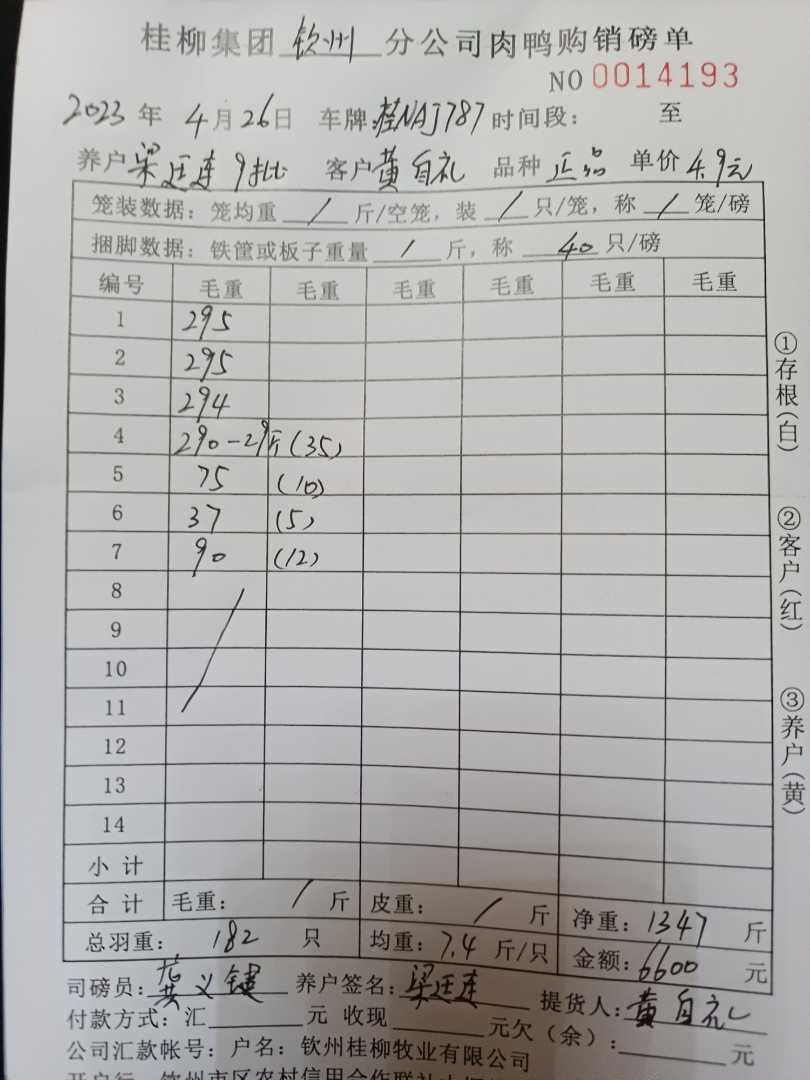 桂柳集团 钦州 分公司肉鸭购销磅单
NO 0014193
2023 年 4月26日 车牌:桂NAJ787 时间段: 至
养户 梁廷连 9批 客户 黄自礼 品种 正品 单价 4.9元
笼装数据: 笼均重 / 斤/空笼, 装 / 只/笼, 称 / 笼/磅
捆脚数据: 铁筐或板子重量 / 斤, 称 40 只/磅
编号 毛重 毛重 毛重 毛重 毛重 毛重
1 295
2 295
3 294
4 290-29斤(35)
5 75 (10)
6 37 (5)
7 90 (12)
8
9
10
11
12
13
14
小计
合计 毛重: / 斤 皮重: / 斤 净重: 1347 斤
总羽重: 182 只 均重: 7.4 斤/只 金额: 6600 元
司磅员: 义键 养户签名: 梁廷连 提货人: 黄自礼
付款方式: 汇 元 收现 元欠(余): 元
公司汇款帐号: 户名: 钦州桂柳牧业有限公司
开户行 钦州市区农村信用合作联社
①存根(白)
②客户(红)
③养户(黄)